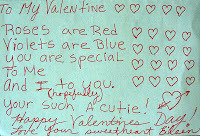 To My Valentine
Roses are Red
Violets are Blue
you are special
To Me
And I to you.
(hopefully)
Your such A cutie!
Happy Valentines Day,
Love your sweetheart Eileen